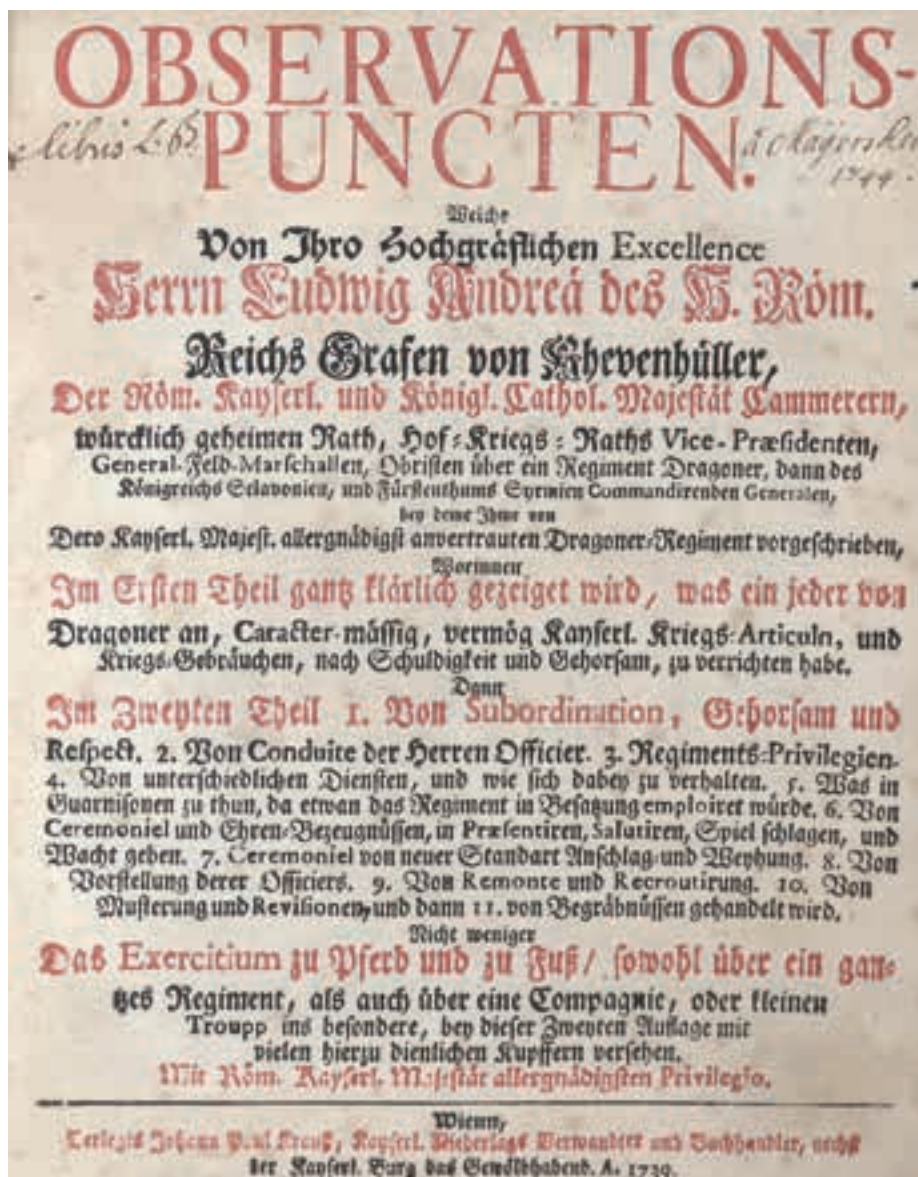 OBSERVATIONS-
PUNCTEN.
libris L. B.
1744.
Welche
Von Ihro Hochgräflichen Excellence
Herrn Ludwig Andreá des H. Röm.
Reichs Grafen von Khevenhüller,
Der Röm. Kayserl. und Königl. Cathol. Majestät Cammerern,
würcklich geheimen Rath, Hof-Kriegs-Raths Vice-Præsidenten,
General-Feld-Marschallen, Obristen über ein Regiment Dragoner, dann des
Königreichs Sclavonien, und Fürstenthums Syrmien Commandirenden Generalen,
bey deme Ihme von
Dero Kayserl. Majest. allergnädigst anvertrauten Dragoner-Regiment vorgeschrieben,
Worinnen
Im Ersten Theil gantz klärlich gezeiget wird, was ein jeder von
Dragoner an, Caracter-mässig, vermög Kayserl. Kriegs-Articuln, und
Kriegs-Gebräuchen, nach Schuldigkeit und Gehorsam, zu verrichten habe.
Dann
Im Zweyten Theil 1. Von Subordination, Gehorsam und
Respect. 2. Von Conduite der Herren Officier. 3. Regiments-Privilegien.
4. Von unterschiedlichen Diensten, und wie sich dabey zu verhalten. 5. Was in
Guarnisonen zu thun, da etwan das Regiment in Besatzung emploiret würde. 6. Von
Ceremoniel und Ehren-Bezeugnüssen, in Præsentiren, Salutiren, Spiel schlagen, und
Wacht geben. 7. Ceremoniel von neuer Standart Anschlag- und Weyhung. 8. Von
Vorstellung derer Officiers. 9. Von Remonte und Recroutirung. 10. Von
Musterung und Revisionen, und dann 11. von Begräbnüssen gehandelt wird.
Nicht weniger
Das Exercitium zu Pferd und zu Fuß / sowohl über ein gan-
tzes Regiment, als auch über eine Compagnie, oder kleinen
Troupp ins besondere, bey dieser Zweyten Auflage mit
vielen hierzu dienlichen Kupffern versehen.
Mit Röm. Kayserl. Majestät allergnädigsten Privilegio.
Wienn,
Verlegts Johann Paul Krauß, Kayserl. Niederlags Verwandter und Buchhandler, nechst
der Kayserl. Burg das Gewölbhabend. A. 1739.